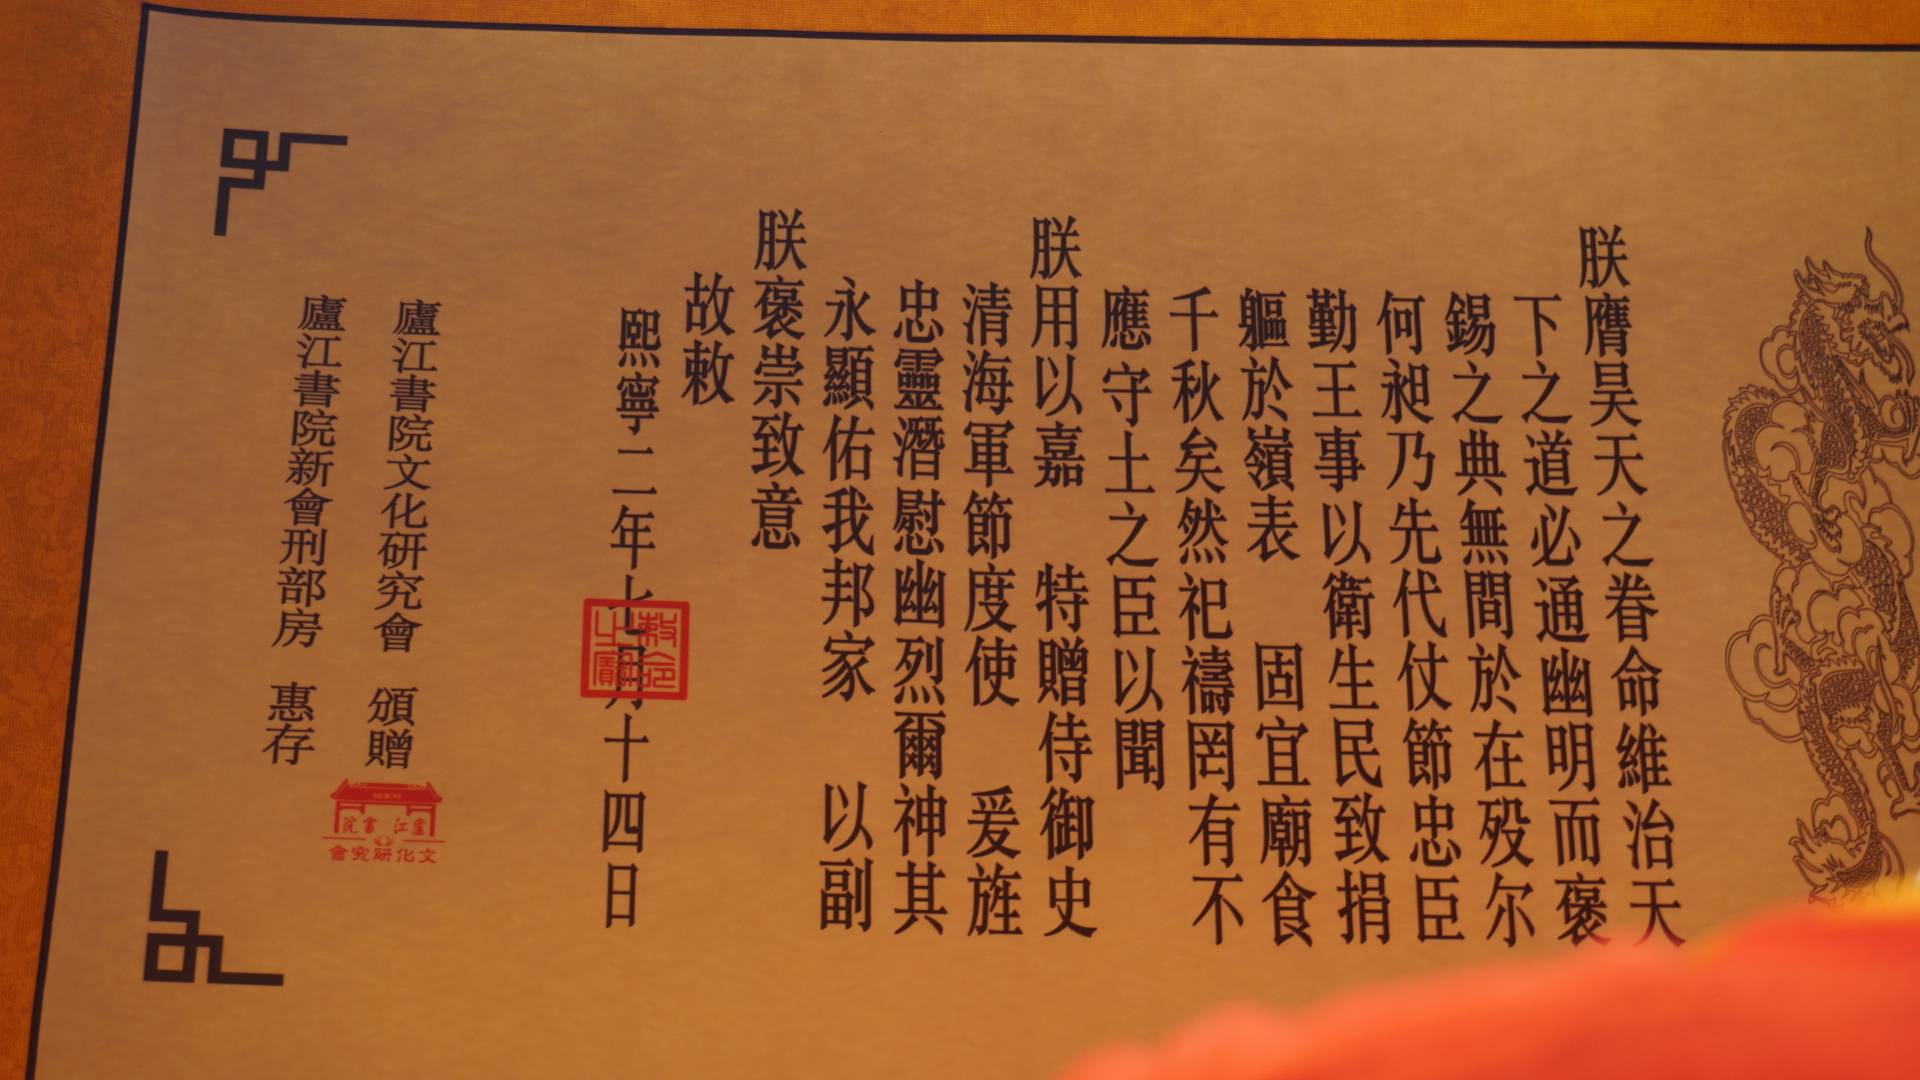 朕膺昊天之眷命維治天
下之道必通幽明而褒
錫之典無間於在殁尔
何昶乃先代仗節忠臣
勤王事以衛生民致捐
軀於嶺表　固宜廟食
千秋矣然祀禱罔有不
應守土之臣以聞
朕用以嘉　特贈侍御史
清海軍節度使　爰旌
忠靈潛慰幽烈爾神其
永顯佑我邦家　以副
朕褒崇致意
故敕
熙寧二年七月十四日
敕命之寶
廬江書院文化研究會　頒贈
廬江書院
文化研究會
廬江書院新會刑部房　惠存